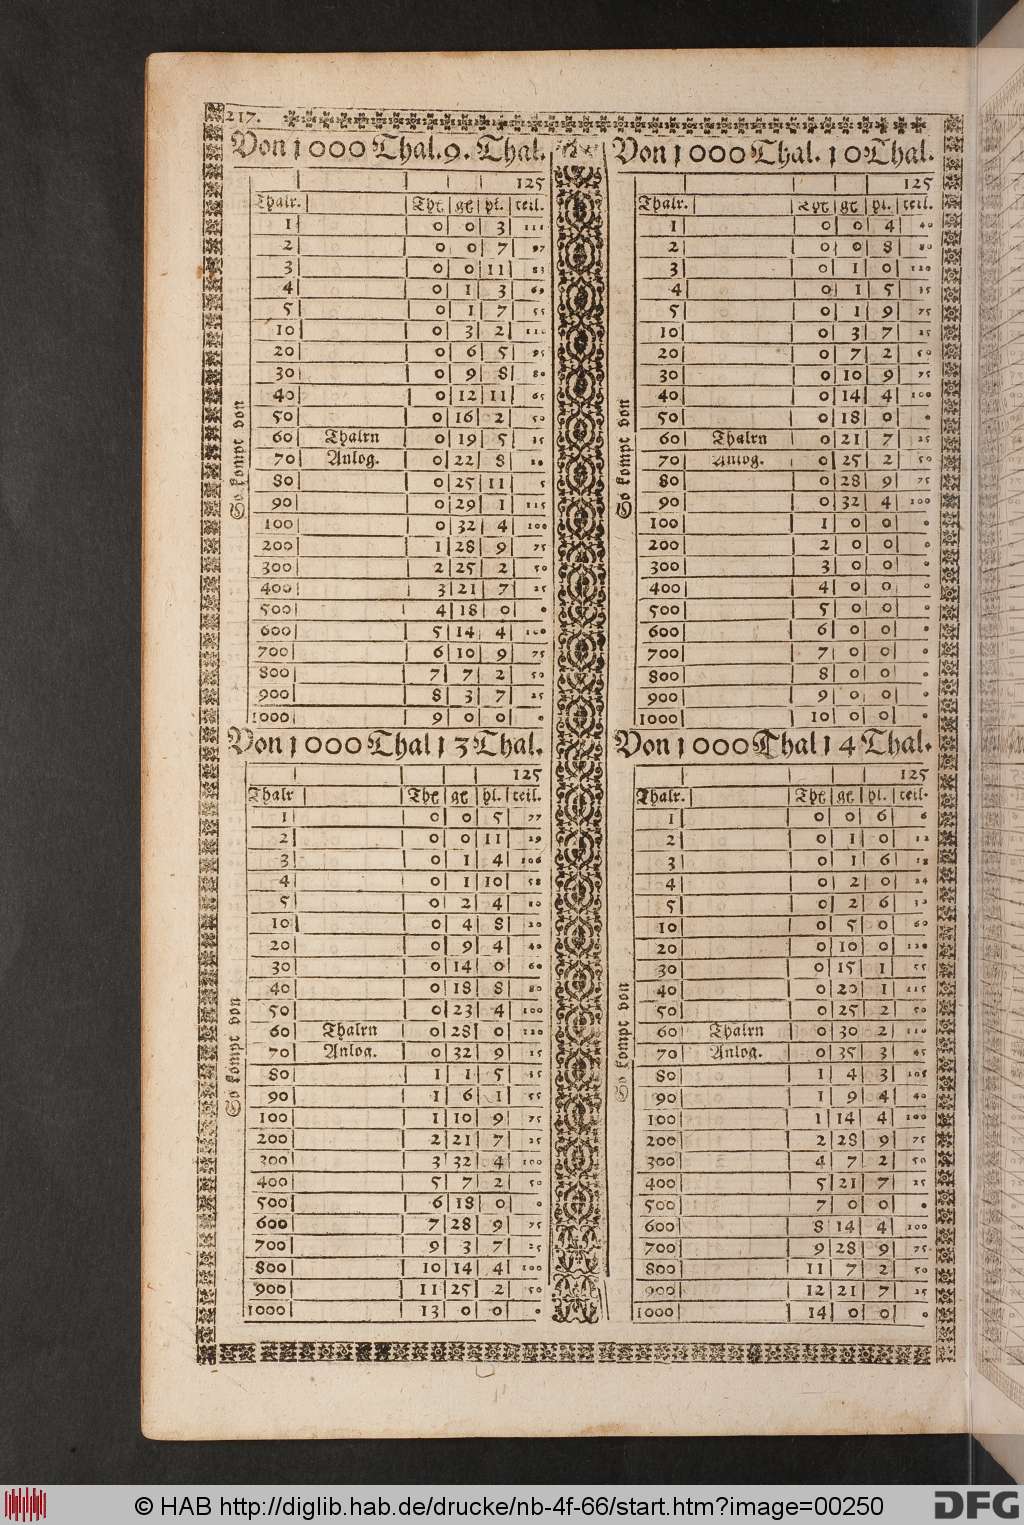 217.
Von 1000 Thal. 9. Thal.
125
Thalr. Thȩ gȩ pf. teil.
1 0 0 3 111
2 0 0 7 97
3 0 0 11 83
4 0 1 3 69
5 0 1 7 55
10 0 3 2 110
20 0 6 5 95
30 0 9 8 80
40 0 12 11 65
50 0 16 2 50
60 Thalrn 0 19 5 35
70 Anlog. 0 22 8 20
80 0 25 11 5
90 0 29 1 115
100 0 32 4 100
200 1 28 9 75
300 2 25 2 50
400 3 21 7 25
500 4 18 0 0
600 5 14 4 100
700 6 10 9 75
800 7 7 2 50
900 8 3 7 25
1000 9 0 0 0
So kompt von
Von 1000 Thal. 10 Thal.
125
Thalr. Thȩ gȩ pf. teil.
1 0 0 4 40
2 0 0 8 80
3 0 1 0 120
4 0 1 5 35
5 0 1 9 75
10 0 3 7 25
20 0 7 2 50
30 0 10 9 75
40 0 14 4 100
50 0 18 0 0
60 Thalrn 0 21 7 25
70 Anlog. 0 25 2 50
80 0 28 9 75
90 0 32 4 100
100 1 0 0 0
200 2 0 0 0
300 3 0 0 0
400 4 0 0 0
500 5 0 0 0
600 6 0 0 0
700 7 0 0 0
800 8 0 0 0
900 9 0 0 0
1000 10 0 0 0
So kompt von
Von 1000 Thal 13 Thal.
125
Thalr Thȩ gȩ pf. teil.
1 0 0 5 77
2 0 0 11 29
3 0 1 4 106
4 0 1 10 58
5 0 2 4 80
10 0 4 8 20
20 0 9 4 40
30 0 14 0 60
40 0 18 8 80
50 0 23 4 100
60 Thalrn 0 28 0 120
70 Anlog. 0 32 9 15
80 1 1 5 35
90 1 6 1 55
100 1 10 9 75
200 2 21 7 25
300 3 32 4 100
400 5 7 2 50
500 6 18 0 0
600 7 28 9 75
700 9 3 7 25
800 10 14 4 100
900 11 25 2 50
1000 13 0 0 0
So kompt von
Von 1000 Thal 14 Thal.
125
Thalr. Thȩ gȩ pf. teil.
1 0 0 6 6
2 0 1 0 12
3 0 1 6 18
4 0 2 0 24
5 0 2 6 30
10 0 5 0 60
20 0 10 0 120
30 0 15 1 55
40 0 20 1 115
50 0 25 2 50
60 Thalrn 0 30 2 110
70 Anlog. 0 35 3 45
80 1 4 3 105
90 1 9 4 40
100 1 14 4 100
200 2 28 9 75
300 4 7 2 50
400 5 21 7 25
500 7 0 0 0
600 8 14 4 100
700 9 28 9 75
800 11 7 2 50
900 12 21 7 25
1000 14 0 0 0
So kompt von
© HAB http://diglib.hab.de/drucke/nb-4f-66/start.htm?image=00250
DFG